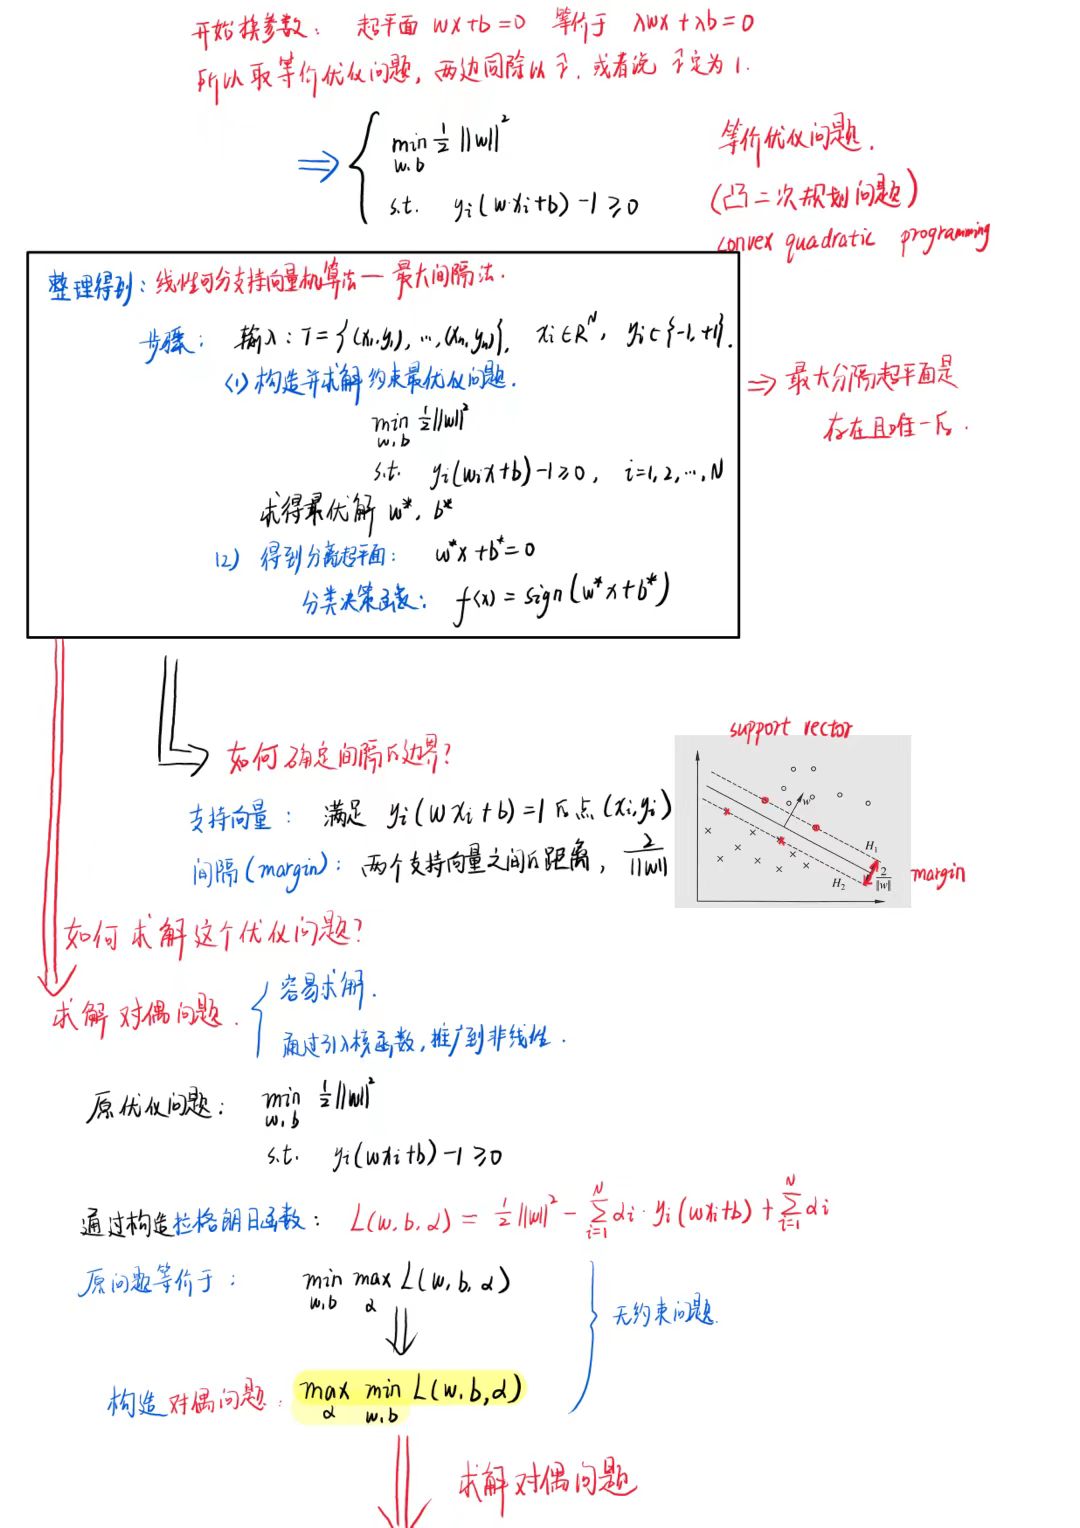 开始换参数： 超平面 wx+b=0 等价于 λwx+λb=0
所以取等价优化问题，两边同除以 r̂，或者说 r̂定为1.
⇒ { min w.b ½||w||²
s.t. yi(w·xi+b)-1≥0
等价优化问题.
(凸二次规划问题)
convex quadratic programming
整理得到：线性可分支持向量机算法—最大间隔法.
步骤： 输入：T={(x₁,y₁),…,(xn,yn)}, xi∈R^N, yi∈{-1,+1}.
(1)构造并求解约束最优化问题.
min w,b ½||w||²
s.t. yi(wix+b)-1≥0, i=1,2,…,N
求得最优解 w*, b*
(2) 得到分离超平面： w*x+b*=0
分类决策函数： f(x)=sign(w*x+b*)
⇒ 最大分隔超平面是
存在且唯一的.
如何确定间隔的边界?
支持向量： 满足 yi(wxi+b)=1的点(xi,yi)
间隔(margin)：两个支持向量之间的距离, 2/||w||
support vector
w
H₁
H₂
2/||w||
margin
如何求解这个优化问题?
求解对偶问题.
容易求解.
通过引入核函数,推广到非线性.
原优化问题： min w,b ½||w||²
s.t. yi(wxi+b)-1≥0
通过构造拉格朗日函数： L(w,b,α) = ½||w||² - Σ_{i=1}^{N} αi·yi(wxi+b) + Σ_{i=1}^{N} αi
原问题等价于： min w,b max α L(w,b,α)
无约束问题.
构造对偶问题： max α min w,b L(w,b,α)
求解对偶问题